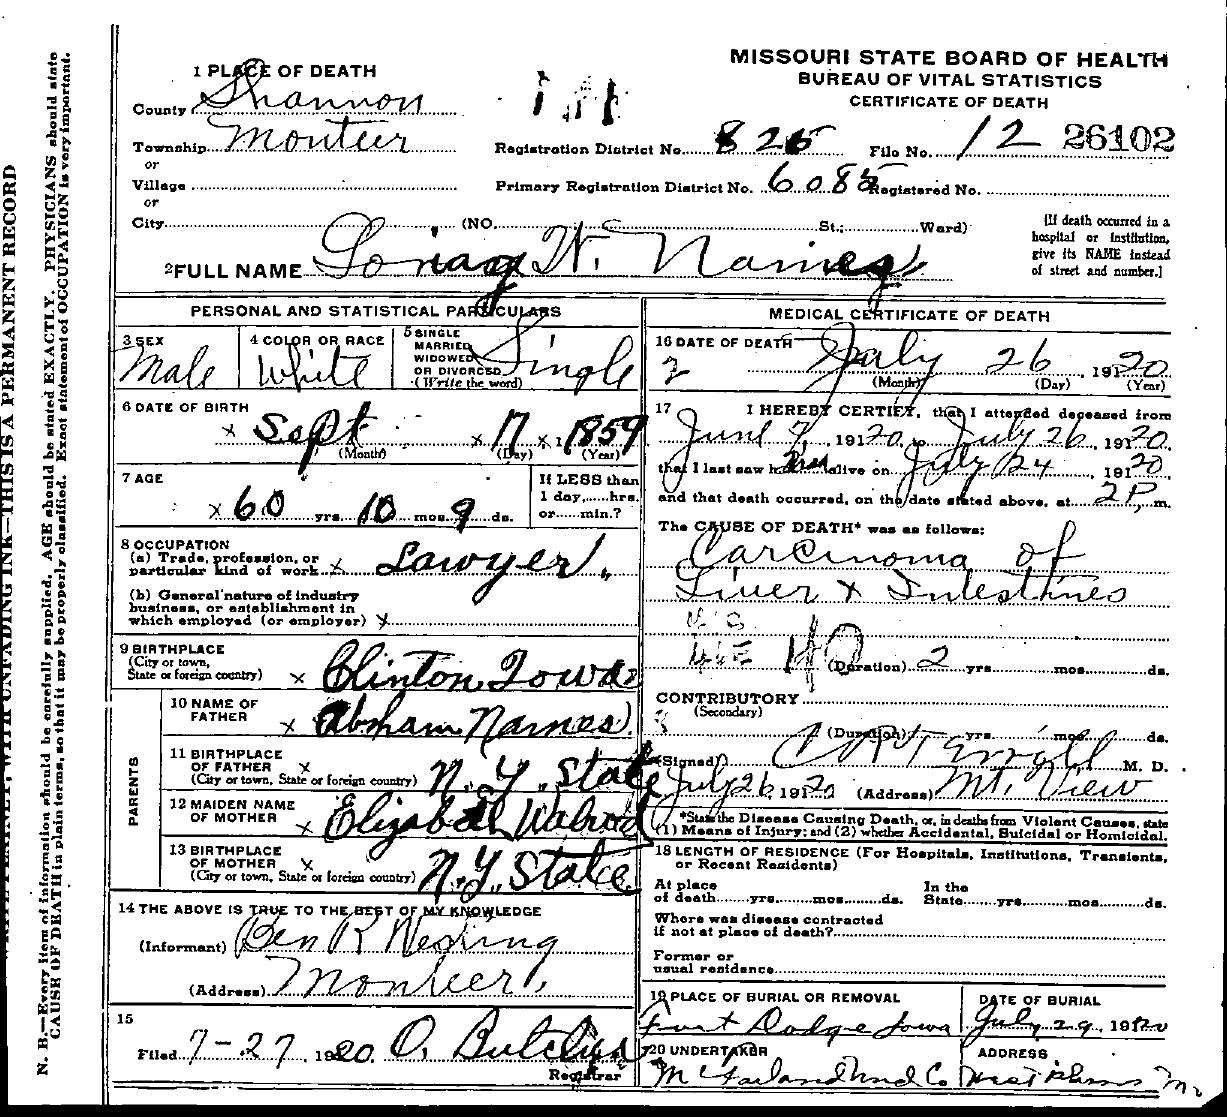 MISSOURI STATE BOARD OF HEALTH
BUREAU OF VITAL STATISTICS
CERTIFICATE OF DEATH
1 PLACE OF DEATH
County Shannon
Township Montier
or
Village
or
City (NO. St.; Ward)
Registration District No. 825 File No. 12 26102
Primary Registration District No. 6085 Registered No.
[If death occurred in a
hospital or institution,
give its NAME instead
of street and number.]
2 FULL NAME W.
PERSONAL AND STATISTICAL PARTICULARS
3 SEX
Male
4 COLOR OR RACE
White
5 SINGLE
MARRIED
WIDOWED
OR DIVORCED
(Write the word)
Single
6 DATE OF BIRTH
x Sept x 17 x 1859
(Month) (Day) (Year)
7 AGE
x 60 yrs. 10 mos. 9 ds.
If LESS than
1 day,......hrs.
or......min.?
8 OCCUPATION
(a) Trade, profession, or
particular kind of work x Lawyer
(b) General nature of industry
business, or establishment in
which employed (or employer) x
9 BIRTHPLACE
(City or town,
State or foreign country) x Clinton Iowa
PARENTS
10 NAME OF
FATHER x Abraham Names
11 BIRTHPLACE
OF FATHER x
(City or town, State or foreign country) N.Y. State
12 MAIDEN NAME
OF MOTHER x Elizabeth
13 BIRTHPLACE
OF MOTHER x
(City or town, State or foreign country) N.Y. State
14 THE ABOVE IS TRUE TO THE BEST OF MY KNOWLEDGE
(Informant) Ben R
(Address) Monteer
15
Filed 7-27 1920 O. Butcher
Registrar
MEDICAL CERTIFICATE OF DEATH
16 DATE OF DEATH July 26 , 19120
(Month) (Day) (Year)
17 I HEREBY CERTIFY, that I attended deceased from
June 7, 19120 to July 26, 19120
that I last saw him alive on July 24 19120
and that death occurred, on the date stated above, at 2 P. m.
The CAUSE OF DEATH* was as follows:
Carcinoma of
Liver & Intestines
(Duration) 2 yrs. mos. ds.
CONTRIBUTORY
(Secondary)
(Duration) yrs. mos. ds.
(Signed) M. D.
July 26 19120 (Address) Mt. View
*State the Disease Causing Death, or, in deaths from Violent Causes, state
(1) Means of Injury; and (2) whether Accidental, Suicidal or Homicidal.
18 LENGTH OF RESIDENCE (For Hospitals, Institutions, Transients,
or Recent Residents)
At place
of death......yrs......mos......ds.
In the
State......yrs......mos......ds.
Where was disease contracted
if not at place of death?
Former or
usual residence
19 PLACE OF BURIAL OR REMOVAL
Fort Dodge Iowa
DATE OF BURIAL
July 29, 1920
20 UNDERTAKER
McFarland Und Co
ADDRESS
West Plains Mo
WITH UNFADING INK—THIS IS A PERMANENT RECORD
N. B.—Every item of information should be carefully supplied. AGE should be stated EXACTLY. PHYSICIANS should state
CAUSE OF DEATH in plain terms, so that it may be properly classified. Exact statement of OCCUPATION is very important.